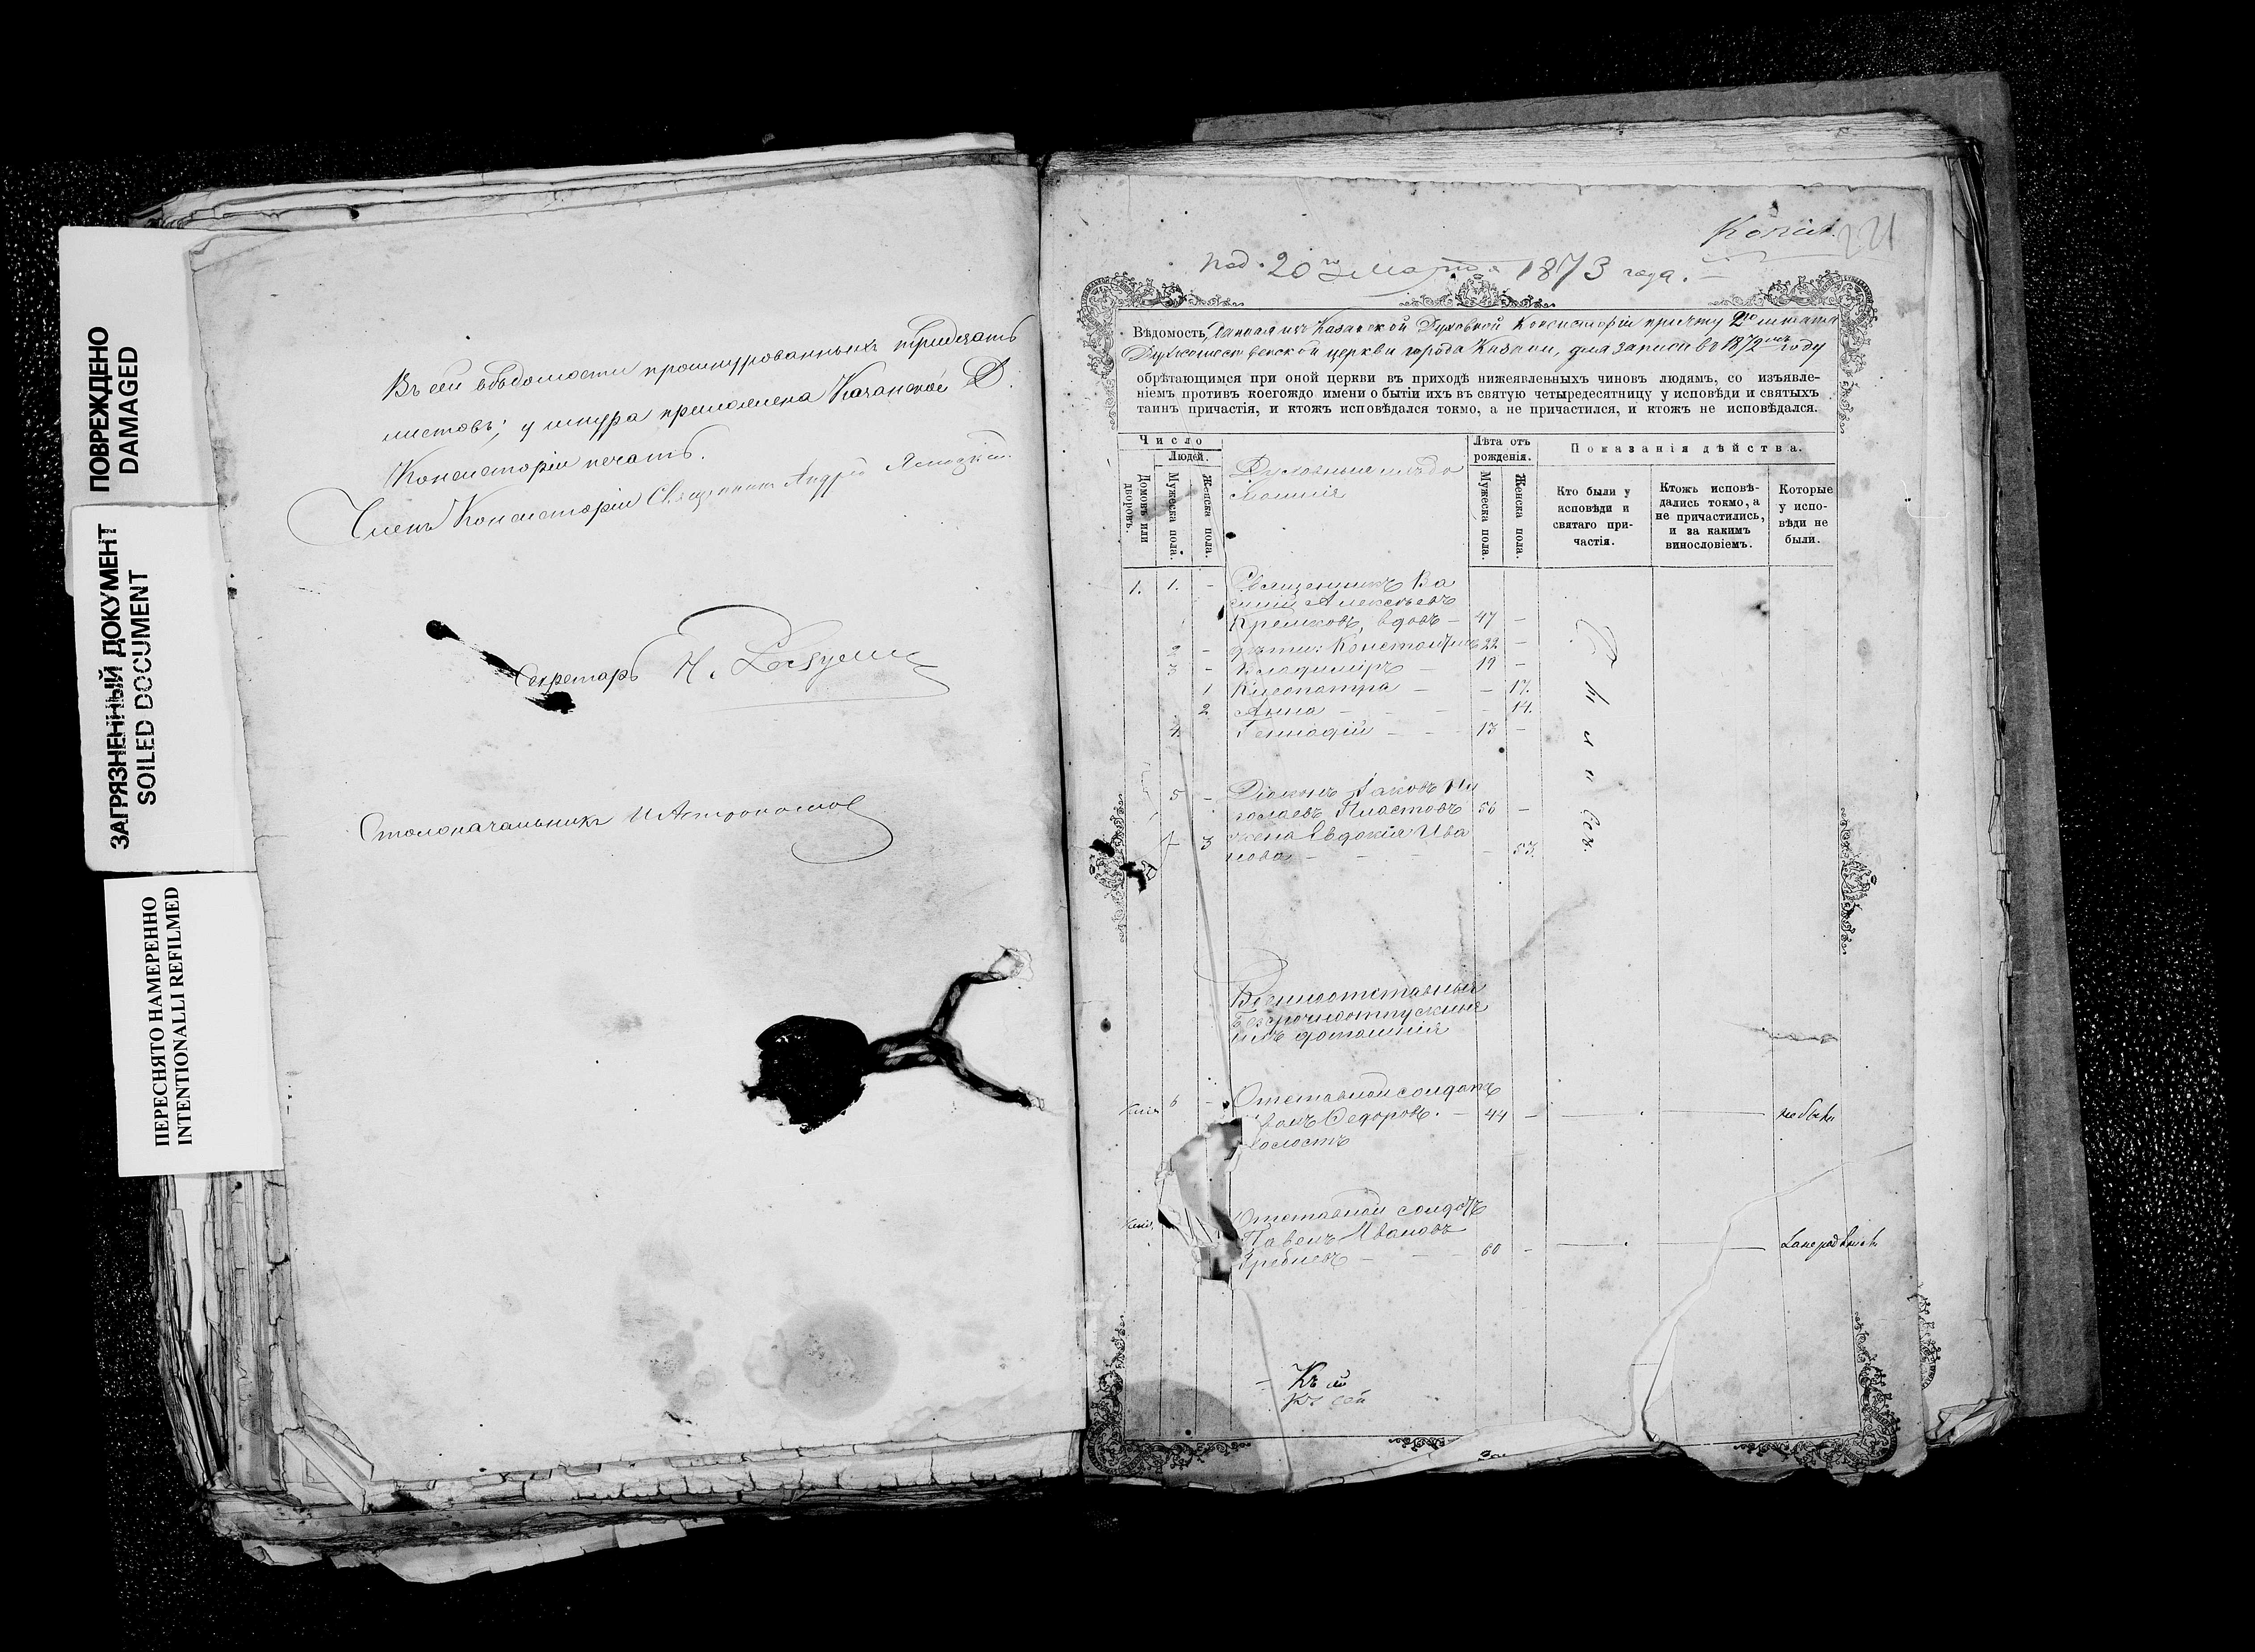 ПОВРЕЖДЕНО
DAMAGED
ЗАГРЯЗНЕННЫЙ ДОКУМЕНТ
SOILED DOCUMENT
ПЕРЕСНЯТО НАМЕРЕННО
INTENTIONALLI REFILMED
Въ сей вѣдомости прошнурованныхъ тридцать
листовъ; у шнура приложена Казанской Д.
Консисторіи печать.
Членъ Консисторіи Священникъ Андрей
Секретарь Н.
Столоначальникъ И Астрономов
Копія. 221
20го Марта 1873 года.
Вѣдомость, данная изъ Казанской Духовной Консисторіи причту 2го штата
Духосошественской церкви города Казани, для записи въ 1872мъ году
обрѣтающимся при оной церкви въ приходѣ нижеявленныхъ чиновъ людямъ, со изъявле-
ніемъ противъ коегождо имени о бытіи ихъ въ святую четыредесятницу у исповѣди и святыхъ
таинъ причастія, и ктожъ исповѣдался токмо, а не причастился, и ктожъ не исповѣдался.
Число
Людей.
Домовъ или дворовъ.
Мужеска пола.
Женска пола.
Духовные и ихъ до
машнія
Лѣта отъ рожденія.
Мужеска пола.
Женска пола.
Показанія дѣйства.
Кто были у исповѣди и святаго при-частія.
Ктожъ исповѣ-дались токмо, а не причастились, и за какимъ винословіемъ.
Которые у испо-вѣди не были.
1. 1. - Священникъ Ва
силій Алексѣевъ
Кремковъ, вдовъ - 47 -
2 - дѣти: Константинъ 22 -
3 - Владиміръ - 19 -
1 Клеопатра - - 17.
2 Анна - - 14.
4. Геннадій - - 13 -
5 - Діаконъ Іаковъ Ни
колаевъ Пластовъ 56 -
3 жена Евдокія Ива
нова - - - 53.
Военноотставные
безсрочноотпускные
ихъ домашнія
6 - Отставной солдатъ
Иванъ Ѳедоровъ. - 44 - не былъ
Отставной солдатъ
Павелъ Ивановъ
Гребневъ - - 60 -
Къ сей
Къ сей